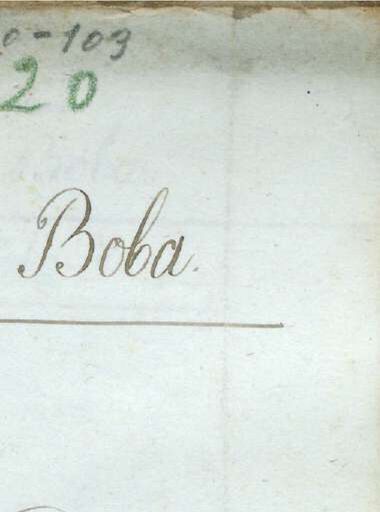 0-103
20
Boba.